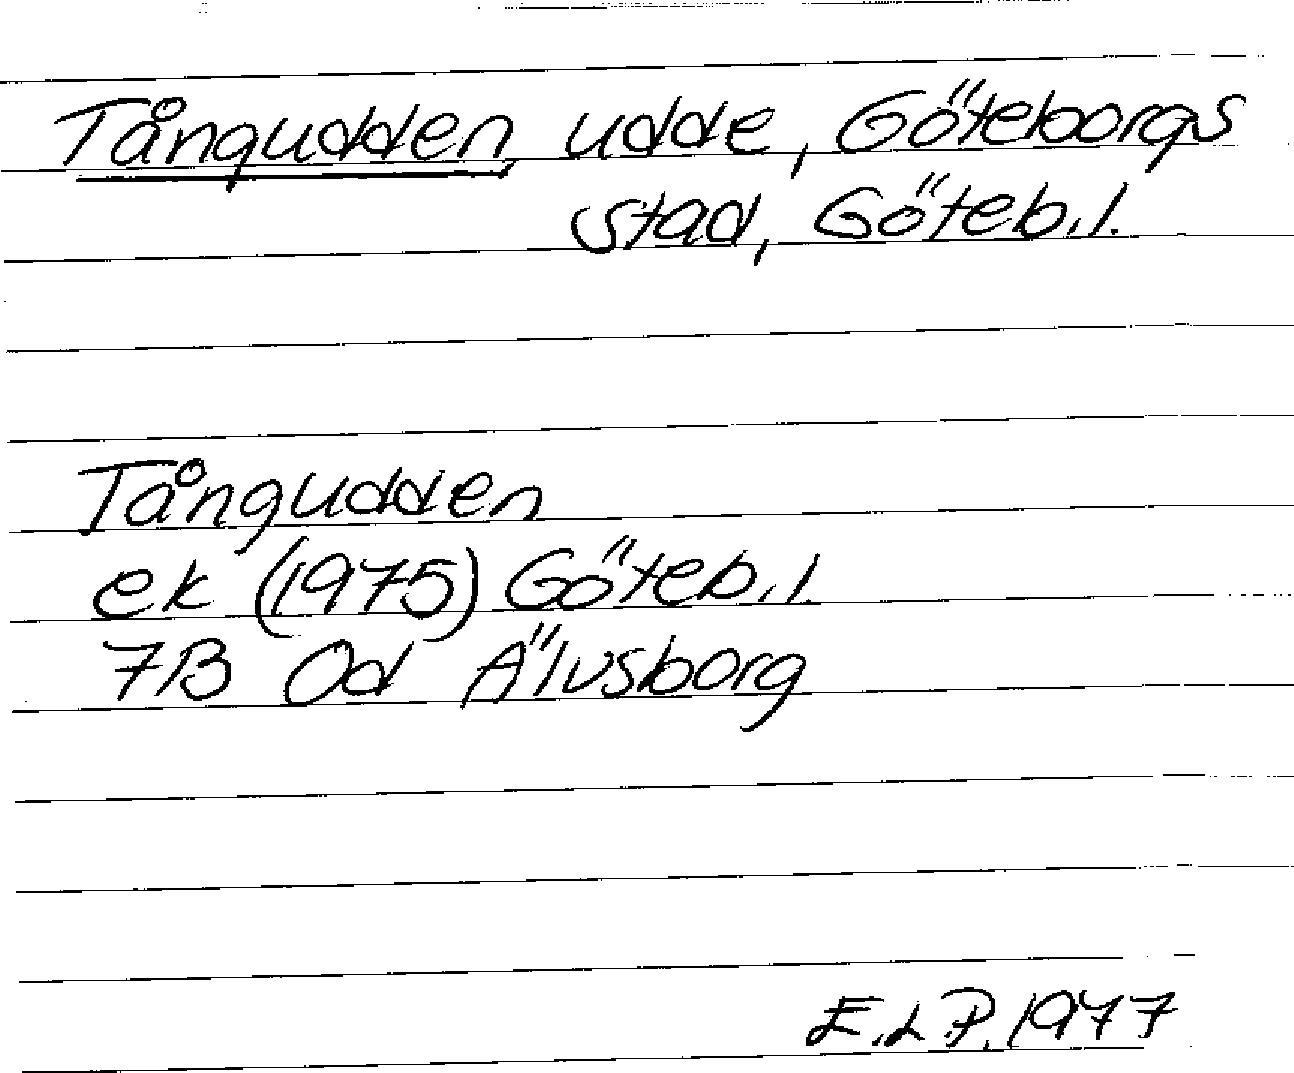 Tångudden, udde, Göteborgs
stad, Göteb.l.
Tångudden
ek (1975) Göteb.l.
7B 0d Älvsborg
E.L.P. 1977